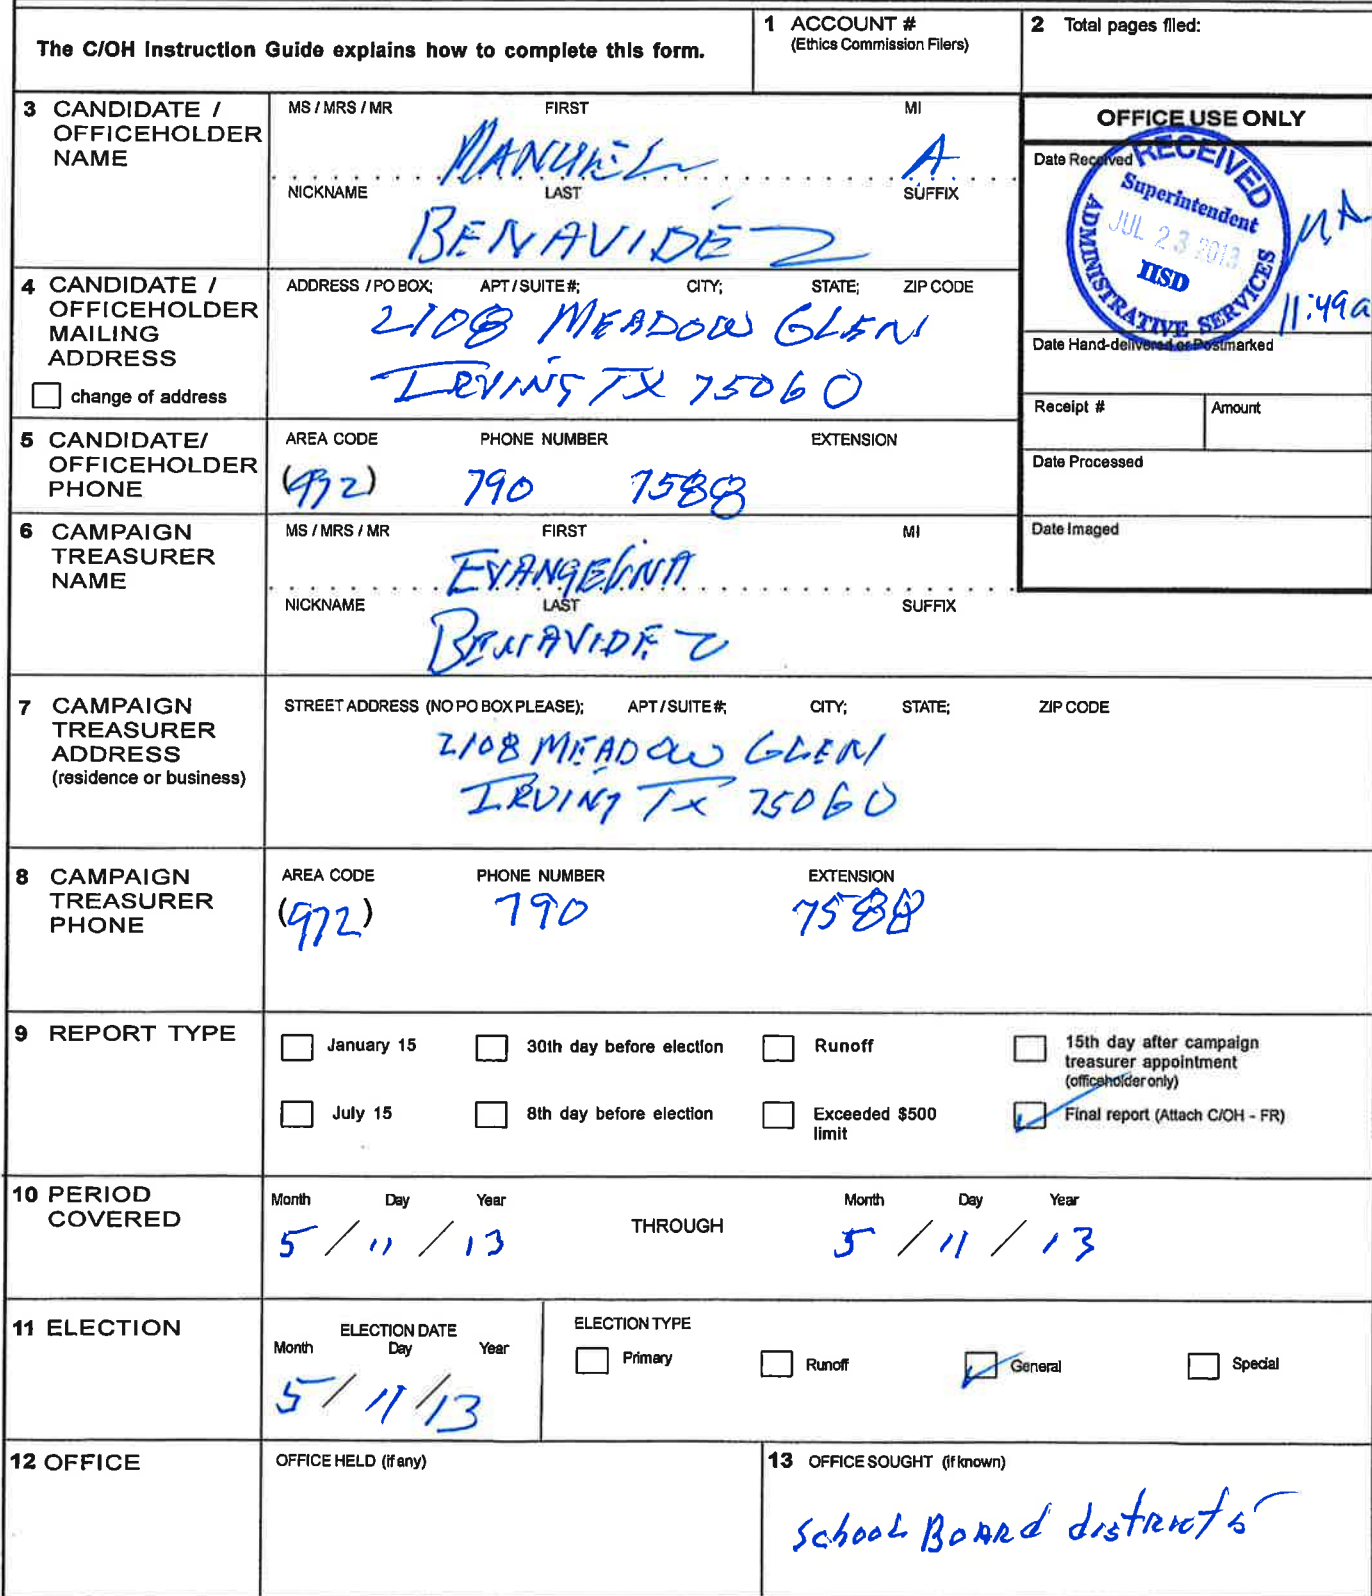 The C/OH Instruction Guide explains how to complete this form.
1 ACCOUNT #
(Ethics Commission Filers)
2 Total pages filed:
3 CANDIDATE /
OFFICEHOLDER
NAME
MS / MRS / MR FIRST MI
MANUEL A
NICKNAME LAST SUFFIX
BENAVIDEZ
OFFICE USE ONLY
Date Received
RECEIVED
Superintendent
JUL 23 2013
IISD
ADMINISTRATIVE SERVICES
11:49a
Date Hand-delivered or Postmarked
Receipt # Amount
Date Processed
Date Imaged
4 CANDIDATE /
OFFICEHOLDER
MAILING
ADDRESS
change of address
ADDRESS / PO BOX; APT / SUITE #; CITY; STATE; ZIP CODE
2108 MEADOW GLEN
IRVING TX 75060
5 CANDIDATE/
OFFICEHOLDER
PHONE
AREA CODE PHONE NUMBER EXTENSION
(972) 790 7588
6 CAMPAIGN
TREASURER
NAME
MS / MRS / MR FIRST MI
EVANGELINA
NICKNAME LAST SUFFIX
BENAVIDEZ
7 CAMPAIGN
TREASURER
ADDRESS
(residence or business)
STREET ADDRESS (NO PO BOX PLEASE); APT / SUITE #; CITY; STATE; ZIP CODE
2108 MEADOW GLEN
IRVING TX 75060
8 CAMPAIGN
TREASURER
PHONE
AREA CODE PHONE NUMBER EXTENSION
(972) 790 7588
9 REPORT TYPE
January 15 30th day before election Runoff 15th day after campaign
treasurer appointment
(officeholder only)
July 15 8th day before election Exceeded $500
limit
Final report (Attach C/OH - FR)
10 PERIOD
COVERED
Month Day Year
5 / 11 / 13
THROUGH
Month Day Year
5 / 11 / 13
11 ELECTION
ELECTION DATE
Month Day Year
5 / 11 / 13
ELECTION TYPE
Primary Runoff General Special
12 OFFICE
OFFICE HELD (if any)
13 OFFICE SOUGHT (if known)
School Board district 5